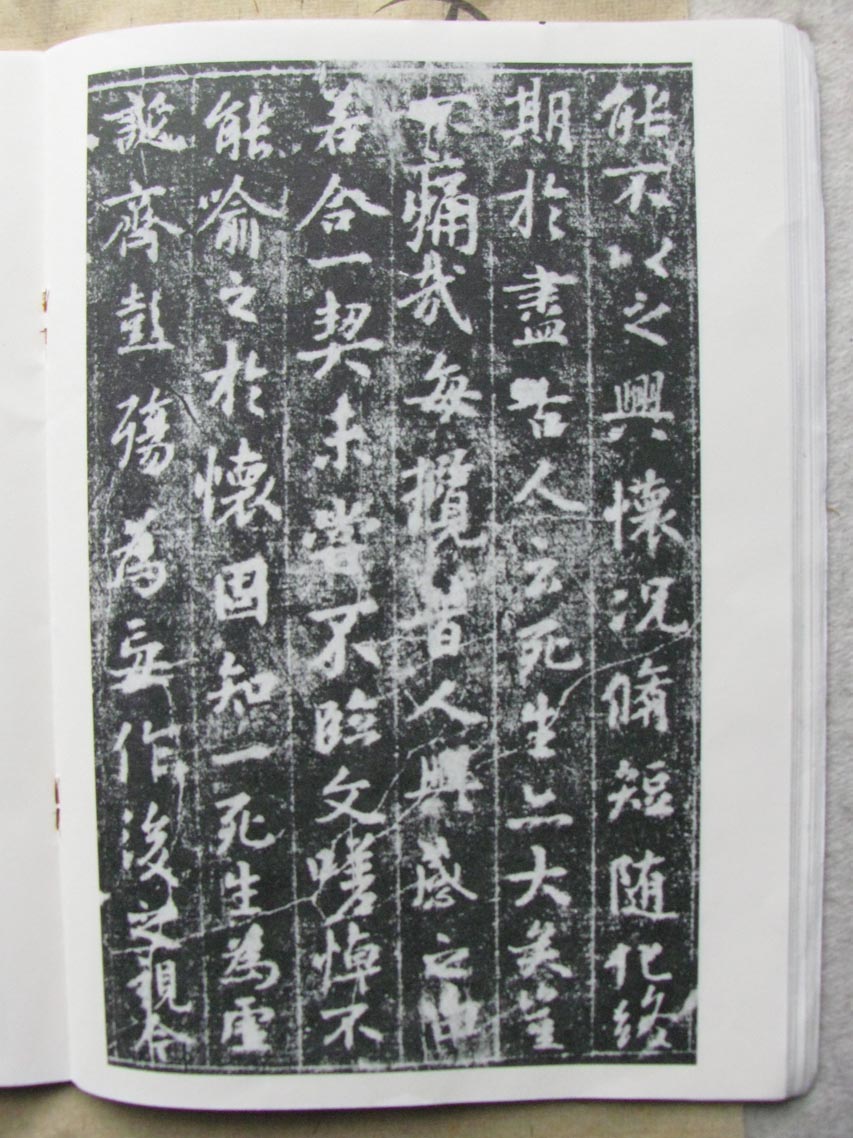 能不以之興懷況脩短随化終
期於盡古人云死生亦大矣豈
不痛哉每攬昔人興感之由
若合一契未嘗不臨文嗟悼不
能喻之於懷固知一死生為虛
誕齊彭殤為妄作後之視今